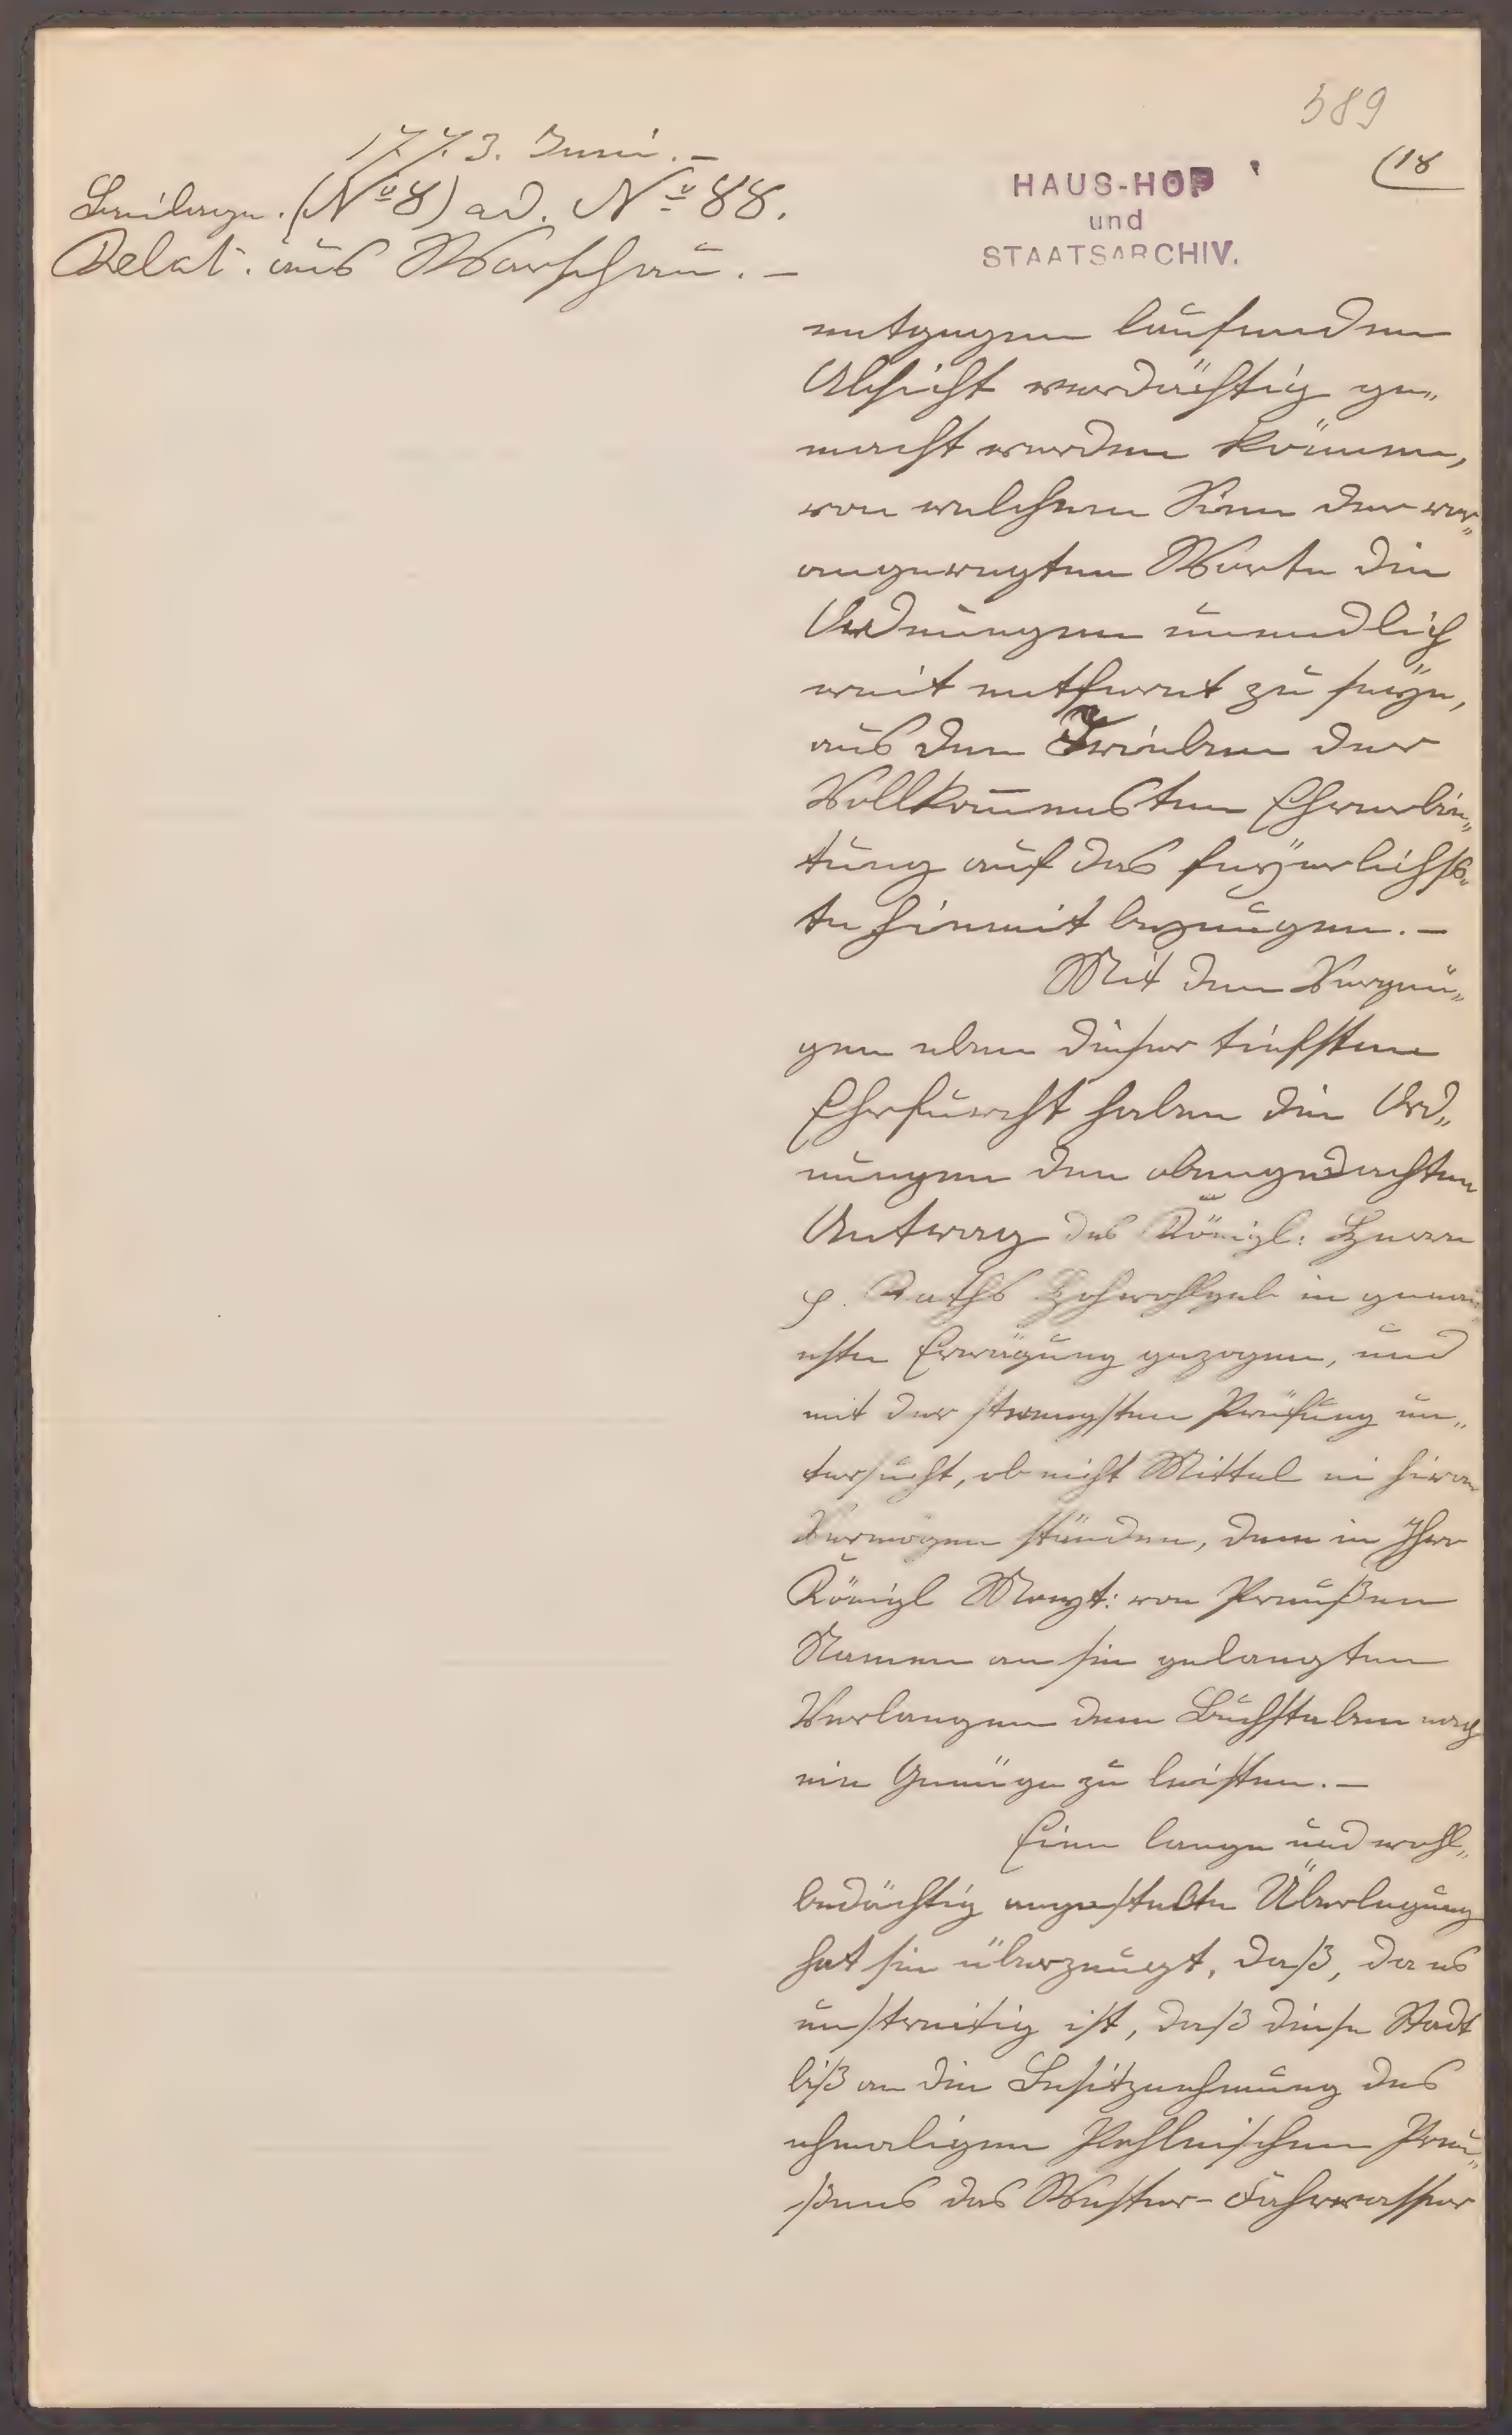 589
(18
1773. Juni. –
Beilage. (Nº 8) ad. Nº 88.
Relat. aus Warschau. –
HAUS-HOF
und
STAATSARCHIV.
entgegen laufenden
Absicht verdächtig ge„
macht werden können,
von welchem Sinn der wer„
angeregten Worte die
Ordnungen unendlich
weit entfernt zu seÿn,
aus den Trieben der
Vollkom̄ensten Ehrerbie„
tung auf das feÿerlichs„
te hiemit bezeugen. –
Mit dem Vergnü„
gen eben dieser tiefsten
Ehrfurcht haben die Ord„
nungen den obengedachten
Antrag des Königl: Herrn
p. Raths Hochwohlgeb in genau
este Erwägung gezogen, und
mit der strengsten Prüfung un„
tersucht, ob nicht Mittel in ihren
Vermögen stünden, dem in Ihro
Königl Mayt: von Preußen
Namen an sie gelangten
Verlangen dem Buchstaben nach
ein Genüge zu leisten. –
Eine lange und wohl„
bedächtig angestelte Überlegung
hat sie überzeugt, daß, da es
unstreitig ist, daß diese Stadt
biß an die Besitznehmung des
ehmaligen Pohlnischen Preu„
ßens das Wester-Fahrwasser